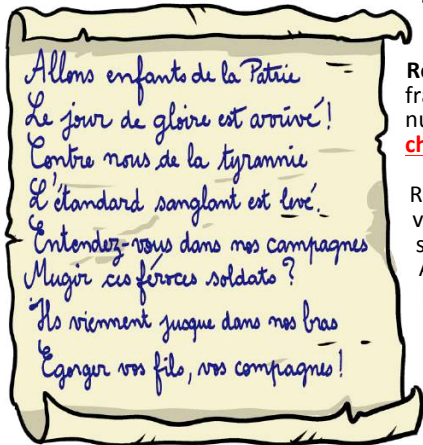 Allons enfants de la Patrie
Le jour de gloire est arrivé !
Contre nous de la tyrannie
L'étandard sanglant est levé.
Entendez-vous dans nos campagnes
Mugir ces féroces soldats ?
Ils viennent jusque dans nos bras
Egorger vos fils, vos compagnes !